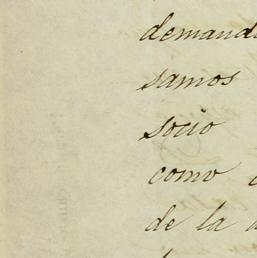 demand
samos
socio
como
de la